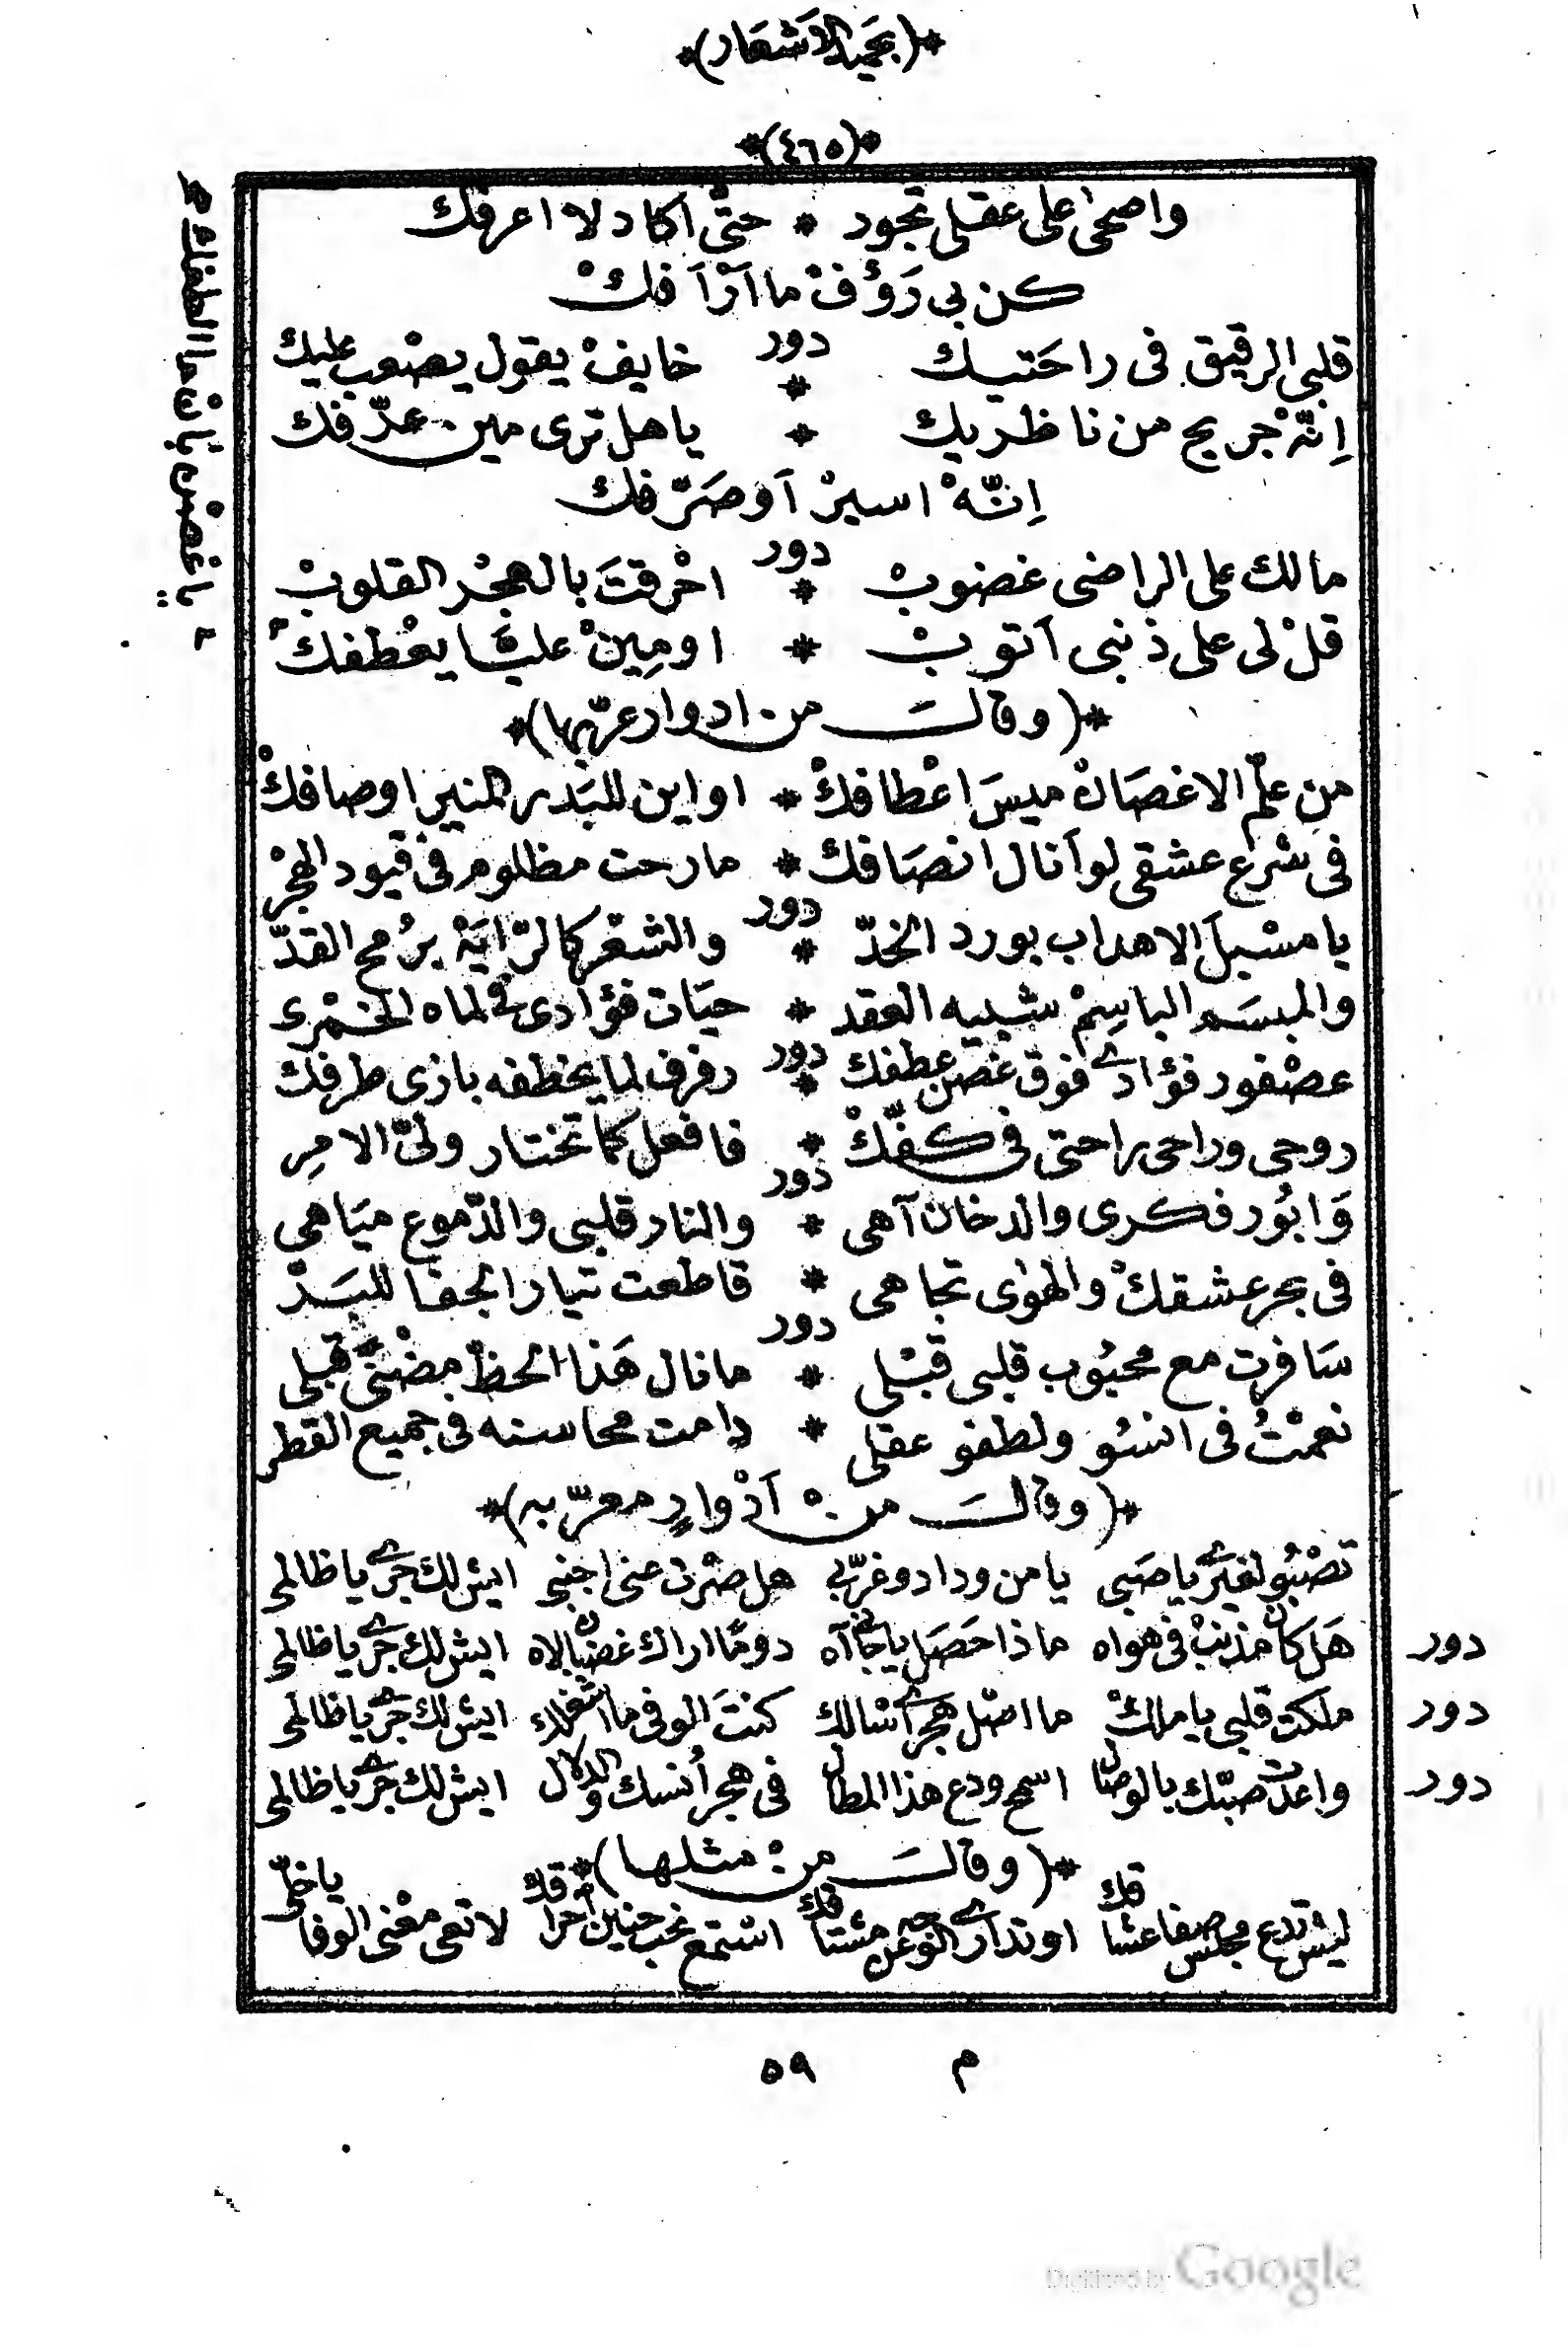 *(بحميد الاشعار)*
*(٤٦٥)*
واصحى على عقلى تجود * حتّى اكاد لا اعرفك
كن بى رَؤُفْ ما اَرْاَفكْ
دور
قلبى الرقيق فى راحَتيك * خايفْ يقول يصْعب عليك
اِنّهْ جريح من ناظريك * ياهل ترى مين عرّفك
اِنّهْ اسيرْ اَو صَرّفك
دور
مالك على الراضى غضوبْ * احْرقتَ بالهجْر القلوبْ
قلْ لى على ذنبى اَتوبْ * او مِينْ علينا يعْطفكْ
يا غصْن بَانْ ما الطفك
*(وقالت من ادوار عرّبتها)*
من علّم الاغصَانْ ميسَ اعْطافكْ * او اين للبَدر المنير اوصافكْ
فى شرْع عشقى لو اَنال انصَافك * مارحت مظلوم فى قيود الهجْر
دور
يا مسْبلَ الاهداب بورد الخدّ * والشعْر كالرّايَهْ برُمح القدّ
والمبسَم الباسِمْ شبيه العقد * حيَات فؤادى فى لماه الخمْرى
دور
عصْفور فؤادى فوق غصْن عطفك * رفرف لما يخطفه بازى طرفك
روحى وراحى راحتى فى كفّكْ * فافعل كما تختار ولىّ الامرِ
دور
وَابُور فكرى والدخان آهى * والنار قلبى والدّموع ميَاهى
فى بحر عشقكْ والهوٰى تجاهى * قاطعت تيار الجفا للبَدْر
دور
سَافرت مع محبُوب قلبى قبْلى * مانال هَذا الحظّ مضْنَى قبلى
نعمْتُ فى انسُو ولطفو عقلى * دامت محاسنه فى جميع القطر
*(وقالت من اَدْوارٍ معرّبه)*
تصْبُو لغيْرى يا صَبى يا من ودادو غرّبى هل صْرت عنى اجنبى ايش لك جَرى يا ظالمى
دور هَل كان مذنبْ فى هواه ماذا حَصَل يا جانى آه دومًا اراك غضبان لاه ايش لك جَرى يا ظالمى
دور ملكت قلبى يا ملكْ ما اصْل هجرى اَسْالك كنتَ الوفى ما اشغلك ايش لك جَرى يا ظالمى
دور واعدت صبّك بالوصال اسمح ودع هذا المطال فى هجر اُنسك والدلال ايش لك جَرى يا ظالمى
*(وقالت منْ مثلها)*
ليْش تدع مجلس صفا عشاقك او تدارى الوجه عن مشتاقك اسْتمع نحب حنين احراقك لا تعى معْنى الوفا يا خلّ
م ٥٩
Digitized by Google